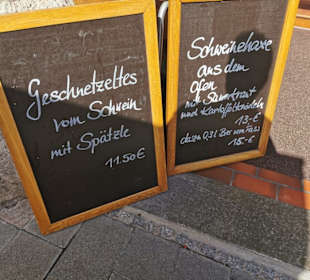 Geschnetzeltes
vom Schwein
mit Spätzle
11.50€
Schweinehaxe
aus dem
ofen
mit Sauerkraut
und Kartoffelknödeln
13.-€
dazu 0,3l Bier vom Fass
15.-€